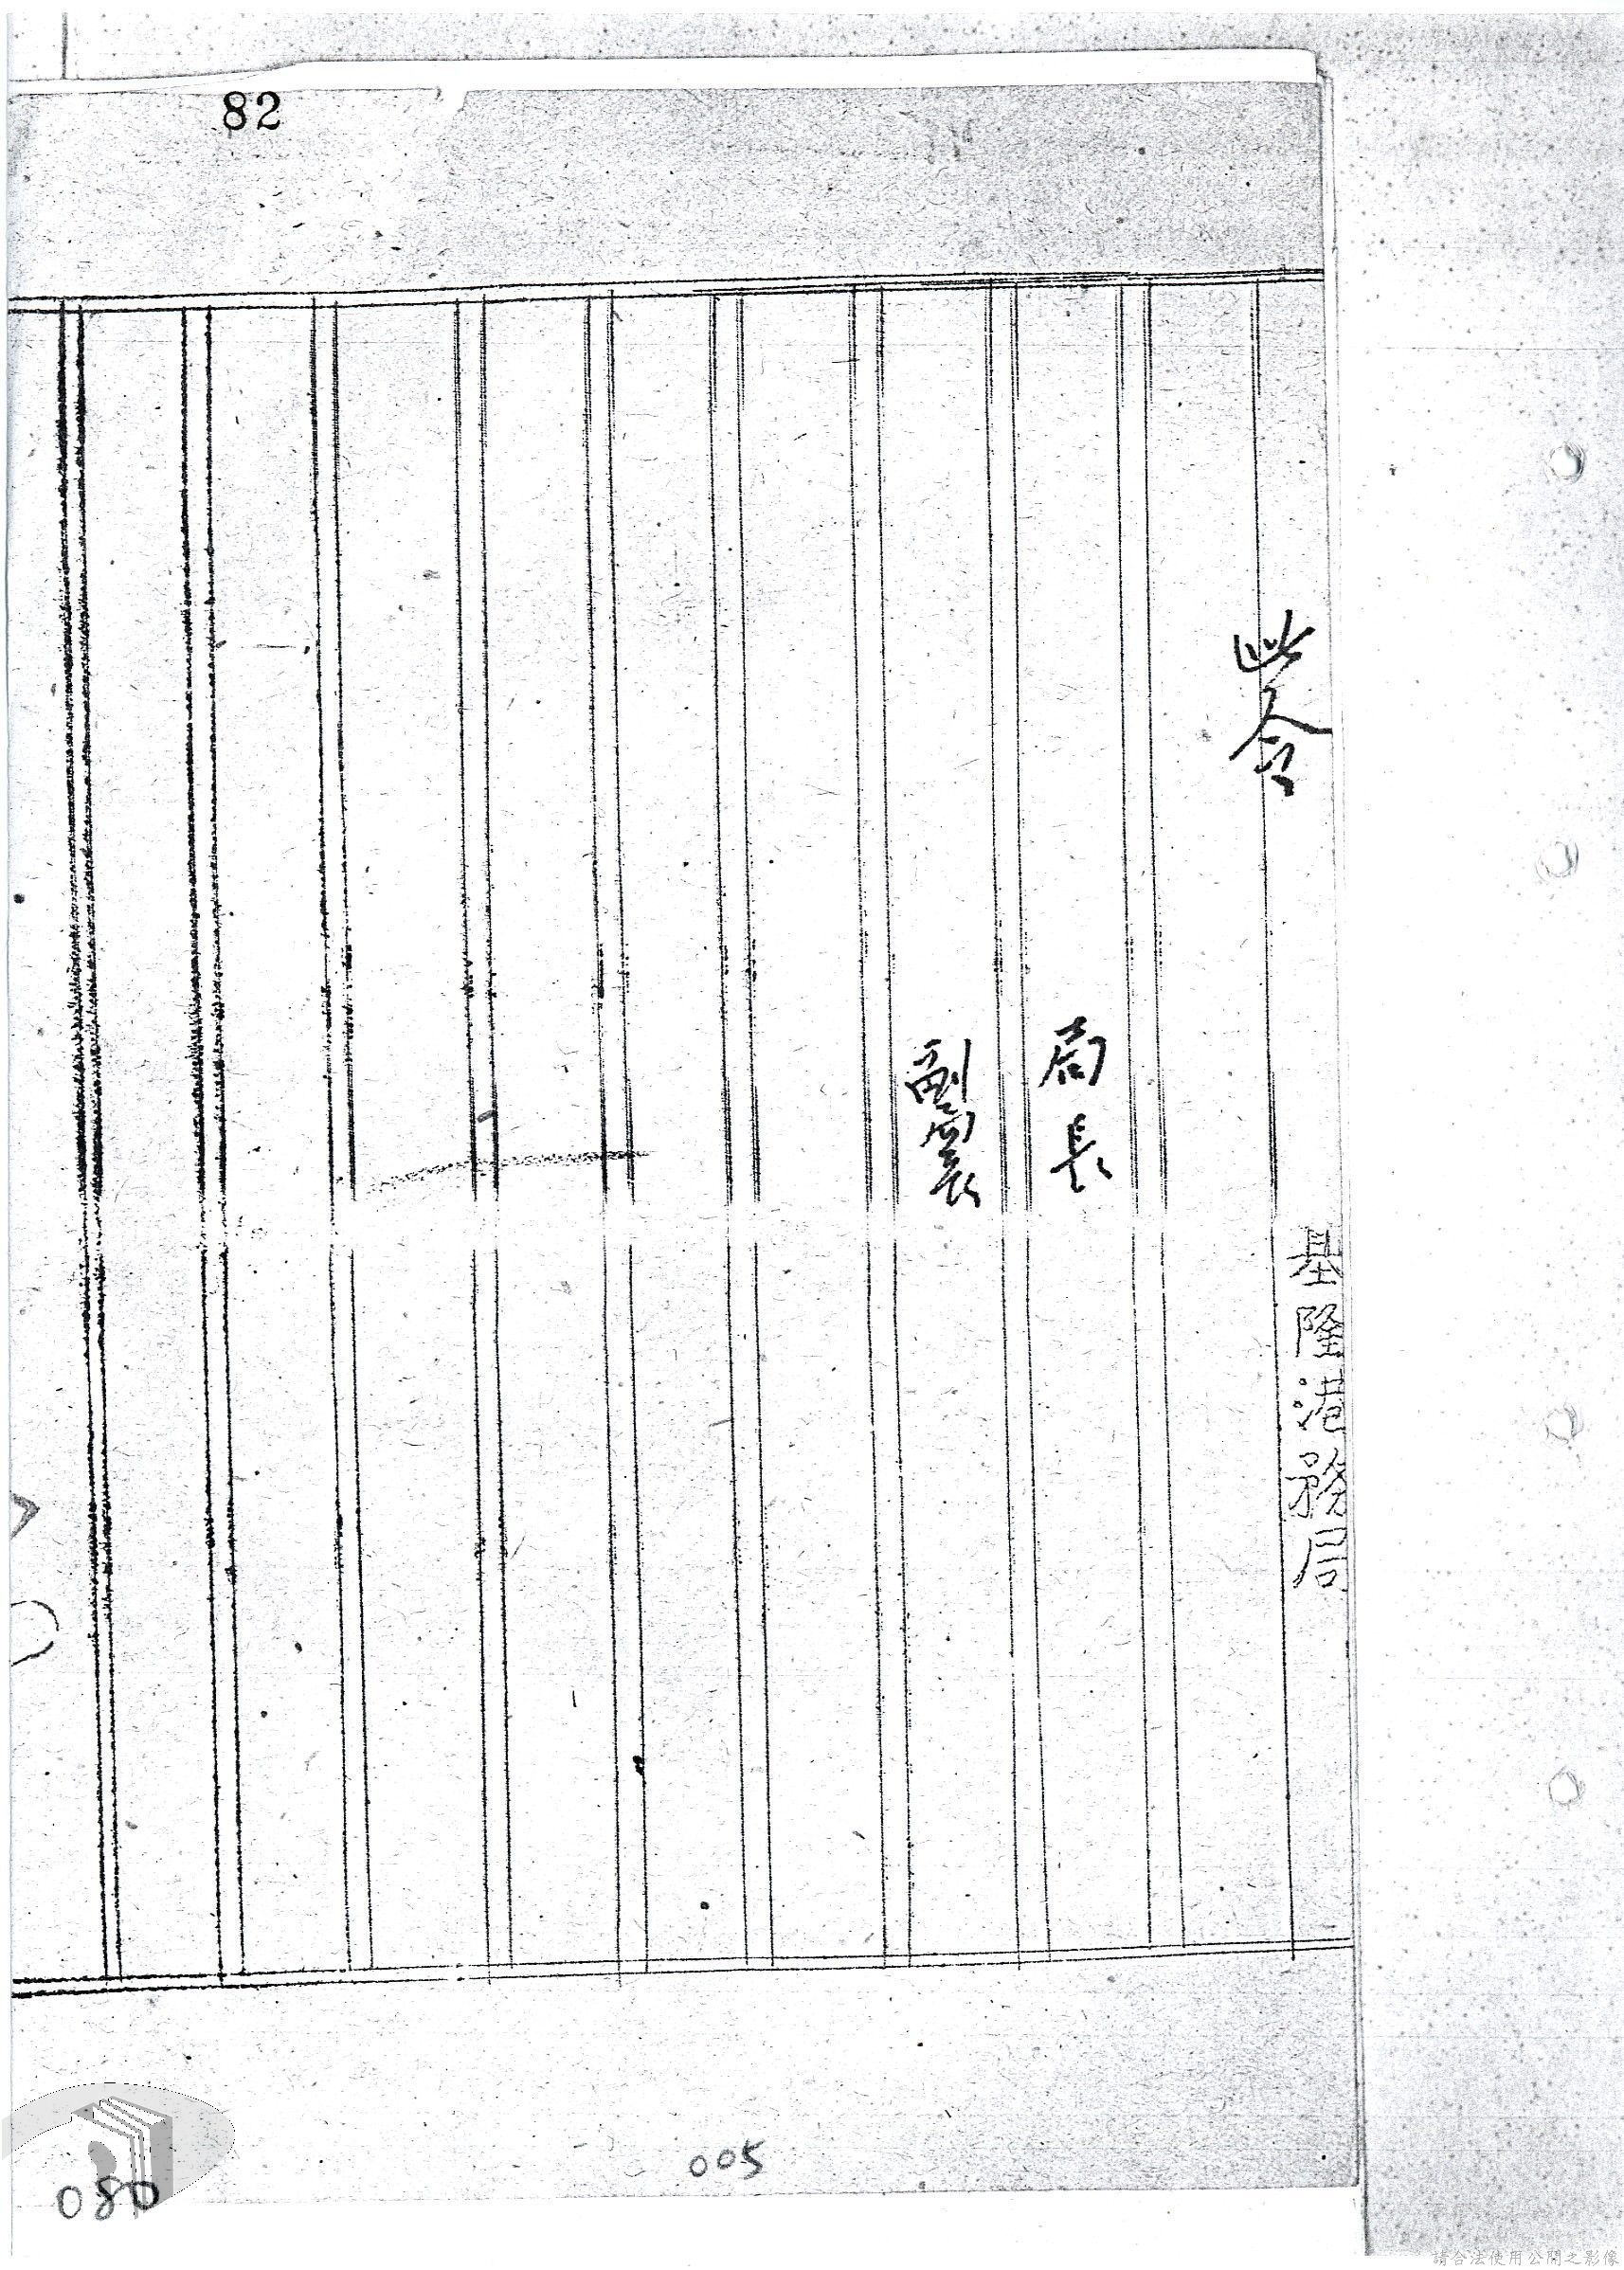 82
此令
基隆港務局
局長
副局長
005
080
請合法使用公開之影像